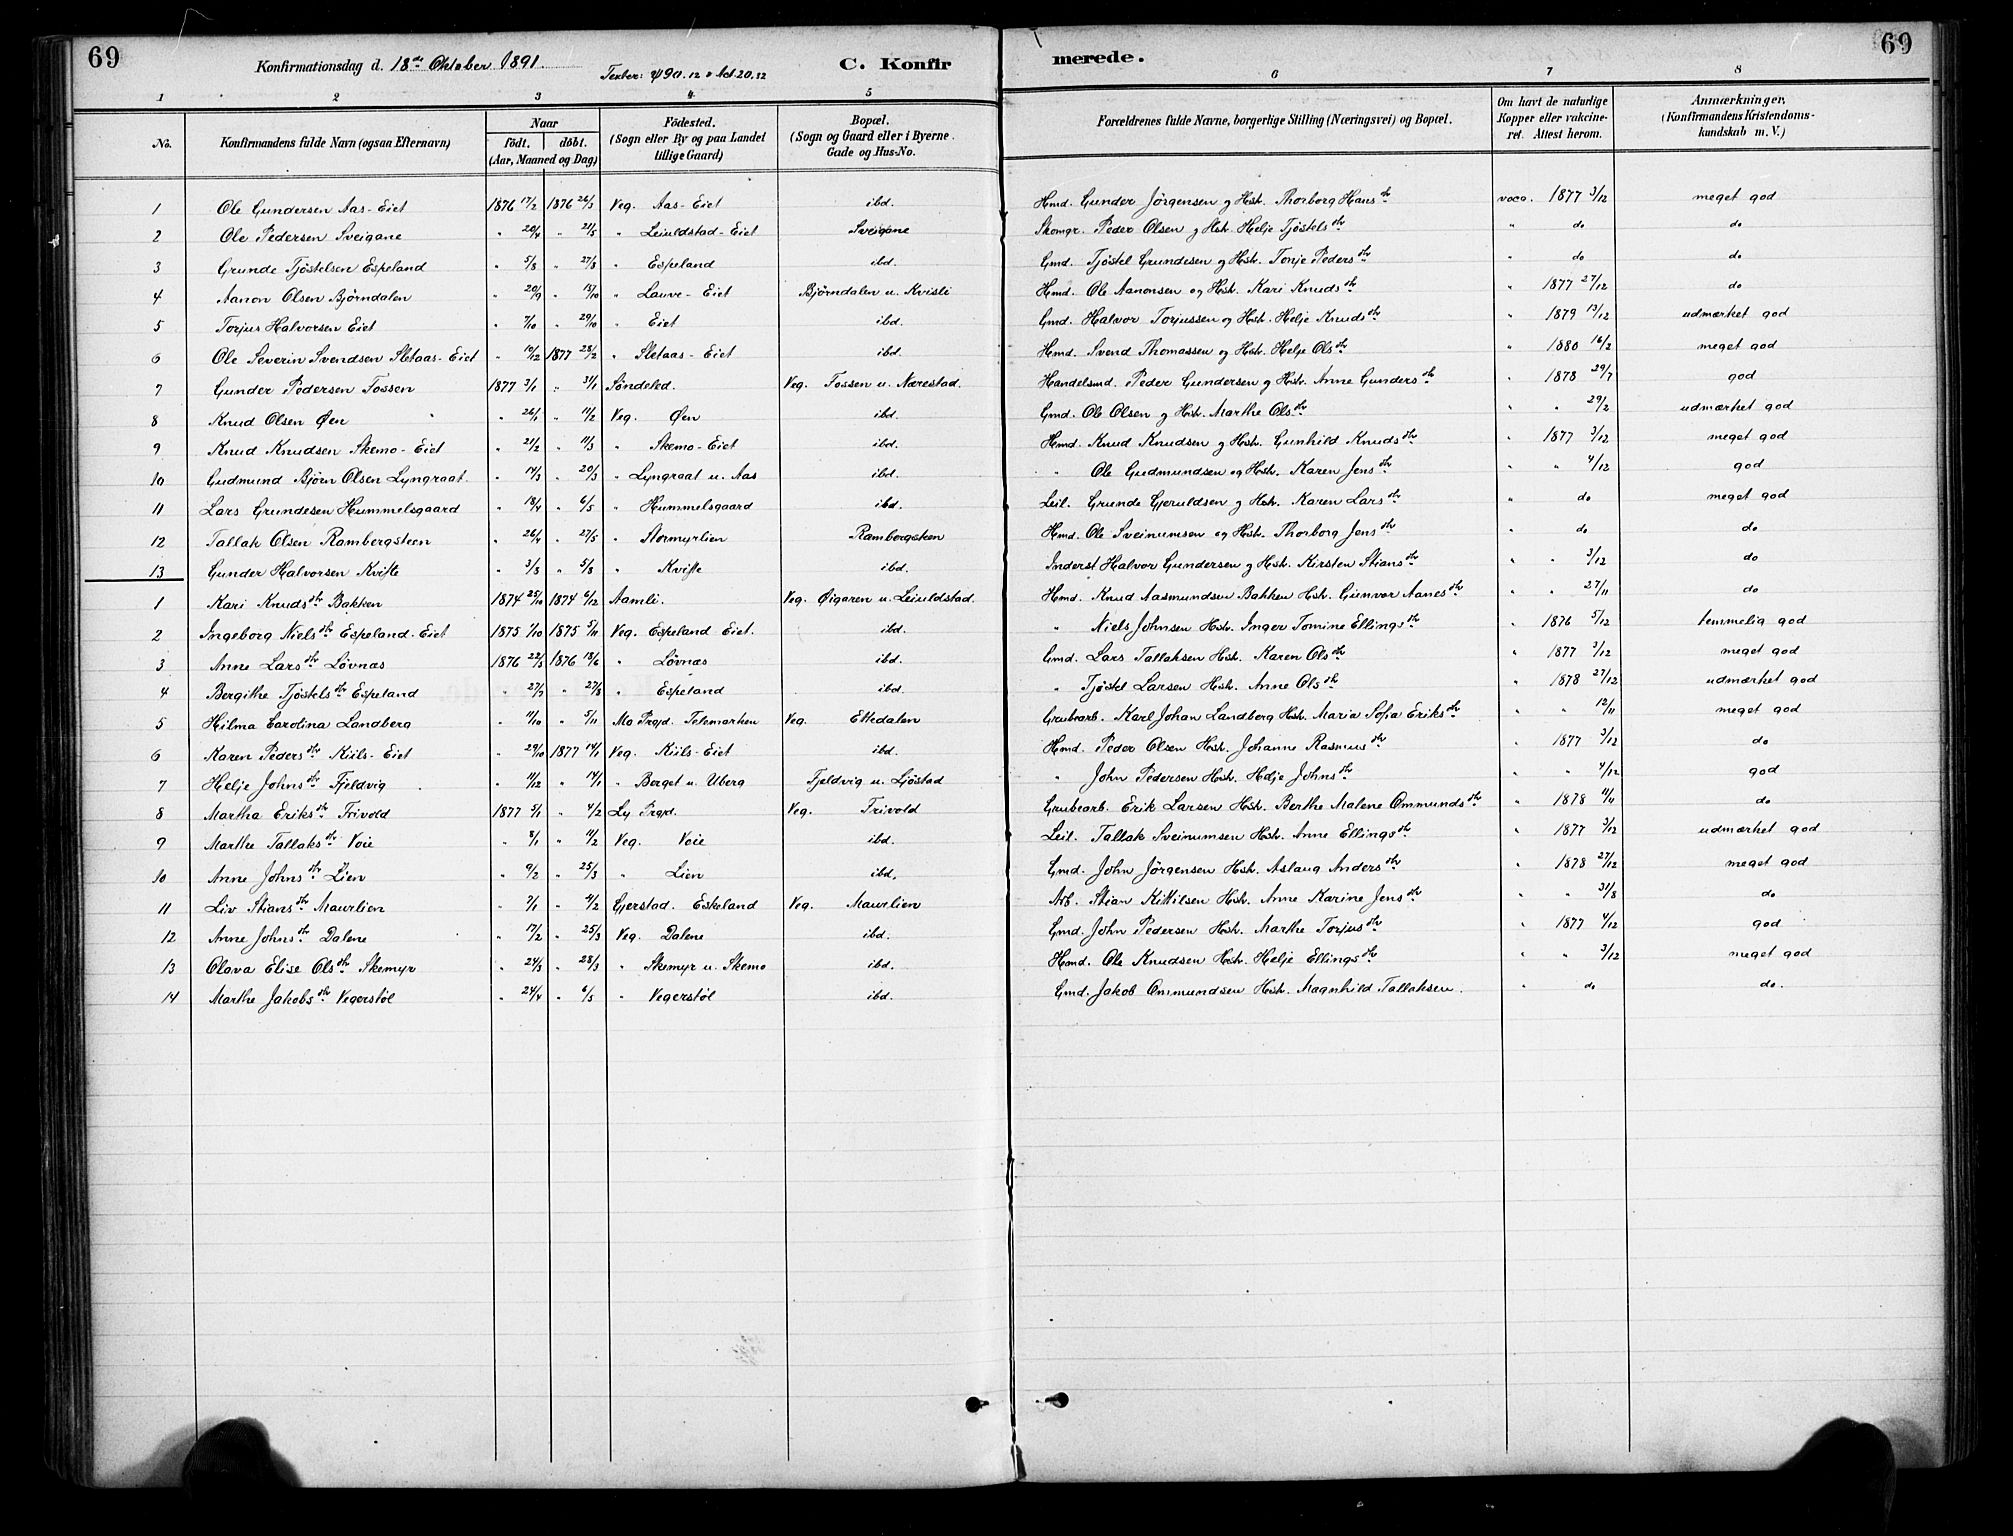 69
Konfirmationsdag d. 18de Oktober 1891.
Texter: ψ 90.12 & Act. 20.32
C. Konfirmerede.
69
1 2 3 4 5 6 7 8
No. | Konfirmandens fulde Navn (ogsaa Efternavn) | Naar født. døbt. (Aar, Maaned og Dag) | Födested. (Sogn eller By og paa Landet tillige Gaard) | Bopæl. (Sogn og Gaard eller i Byerne Gade og Hus-No. | Forældrenes fulde Navne, borgerlige Stilling (Næringsvei) og Bopæl. | Om havt de naturlige Kopper eller vakcineret. Attest herom. | Anmærkninger. (Konfirmandens Kristendomskundskab m. V.)
1 Ole Gundersen Aas-Eiet 1876 17/2 1876 26/3 Veg. Aas-Eiet ibd. Hmd. Gunder Jörgensen og Hstr. Thorborg Hansdtr vacc. 1877 3/12 meget god
2 Ole Pedersen Sveigane " 20/4 " 21/5 " Leiuldstad-Eiet Sveigane Skomgr. Peder Olsen og Hstr. Helje Tjöstelsdtr " do do
3 Grunde Tjöstelsen Espeland " 5/8 " 27/8 " Espeland ibd. Gmd. Tjöstel Grundesen og Hstr. Tonje Pedersdtr " do do
4 Aanon Olsen Björndalen " 20/9 " 15/10 " Lauve-Eiet Björndalen u. Kvisli Hmd. Ole Aanonsen og Hstr. Kari Knudsdtr " 1877 27/12 do
5 Torjus Halvorsen Eiet " 7/10 " 29/10 " Eiet ibd. Gmd. Halvor Torjussen og Hstr. Helje Knudsdtr " 1879 13/12 udmærket god
6 Ole Severin Svendsen Sletaas-Eiet " 10/12 1877 28/2 " Sletaas-Eiet ibd. Hmd. Svend Thomassen og Hstr. Helje Olsdtr " 1880 16/2 meget god
7 Gunder Pedersen Fossen 1877 3/1 " 31/1 Söndeled. Veg. Fossen u. Nærestad. Handelsmd. Peder Gundersen og Hstr. Anne Gundersdtr " 1878 29/7 god
8 Knud Olsen Øen " 26/1 " 11/2 Veg. Øen ibd. Gmd. Ole Olsen og Hstr. Marthe Olsdtr " " 29/2 udmærket god
9 Knud Knudsen Skemo-Eiet " 21/2 " 11/3 " Skemo-Eiet ibd. Hmd. Knud Knudsen og Hstr. Gunhild Knudsdtr " 1877 3/12 meget god
10 Gudmund Björn Olsen Lyngraat. " 14/3 " 20/3 " Lyngraat u. Aas ibd. " Ole Gudmundsen og Hstr. Karen Jensdtr " " 4/12 god
11 Lars Grundesen Hummelsgaard " 18/4 " 6/5 " Hummelsgaard ibd. Leil. Grunde Gjeruldsen og Hstr. Karen Larsdtr " do meget god
12 Tallak Olsen Rambergsteen " 26/4 " 27/5 " Stormyrlien Ramborgsteen Hmd. Ole Sveinumsen og Hstr. Thorborg Jensdtr " do do
13 Gunder Halvorsen Kviste " 3/8 " 5/8 " Kviste ibd. Inderst Halvor Gundersen og Hstr. Kirsten Stiansdtr " " 3/12 do
1 Kari Knudsdtr Bakken 1874 25/10 1874 6/12 Aamli. Veg. Øigaren u. Leiuldstad. Hmd. Knud Aasmundsen Bakken Hstr. Gunvor Aanesdtr " " 27/11 do
2 Ingeborg Nielsdtr Espeland-Eiet 1875 1/10 1875 5/11 Veg. Espeland Eiet. ibd. " Niels Johnsen Hstr. Inger Tomine Ellingsdtr " 1876 5/12 temmelig god
3 Anne Larsdtr Løvnæs 1876 22/5 1876 18/6 " Løvnæs ibd. Gmd. Lars Tallaksen Hstr. Karen Olsdtr " 1877 3/12 meget god
4 Bergithe Tjöstelsdtr Espeland " 27/7 " 27/8 " Espeland ibd. " Tjöstel Larsen Hstr. Anne Olsdtr " 1878 27/12 udmærket god
5 Hilma Carolina Landberg " 11/10 " 5/11 Mo Prgjd. Telemarken Veg. Ettedalen Grubearb. Karl Johan Landberg Hstr. Maria Sofia Eriksdtr " " 12/11 meget god
6 Karen Pedersdtr Kiils-Eiet " 29/10 1877 14/1 Veg. Kiils-Eiet ibd. Hmd. Peder Olsen Hstr. Johanne Rasmusdtr " 1877 3/12 do
7 Helje Johnsdtr Fjeldvig " 11/12 " 14/1 " Berget u. Uberg Fjeldvig u. Ljöstad " John Pedersen Hstr. Helje Johnsdtr " " 4/12 god
8 Martha Eriksdtr Trivold 1877 5/1 " 4/2 Ly Prgjd. Veg. Trivold Grubearb. Erik Larsen Hstr. Berthe Malene Ommundsdtr " 1878 11/4 do
9 Marthe Tallaksdtr Voie " 8/1 " 11/2 Veg. Voie ibd. Leil. Tallak Sveinumsen Hstr. Anne Ellingsdtr " 1877 3/12 udmærket god
10 Anne Johnsdtr Lien " 9/2 " 25/3 " Lien ibd. Gmd. John Jörgensen Hstr. Aslaug Andersdtr " 1878 27/12 meget god
11 Liv Stiansdtr Maurlien " 7/1 " 4/2 Gjerstad. Eskeland Veg. Maurlien Arb. Stian Kittilsen Hstr. Anne Karine Jensdtr " " 31/8 do
12 Anne Johnsdtr Dalene " 17/2 " 25/3 Veg. Dalene ibd. Gmd. John Pedersen Hstr. Marthe Torjusdtr " 1877 4/12 god
13 Olava Elise Olsdtr Skemyr " 24/3 " 28/3 " Skemyr u. Skemo ibd. Hmd. Ole Knudsen Hstr. Helje Ellingsdtr " " 3/12 meget god
14 Marthe Jakobsdtr Vegerstöl " 24/4 " 6/5 " Vegerstöl ibd. Gmd. Jakob Ommundsen Hstr. Magnhild Tallaksen. " do do.